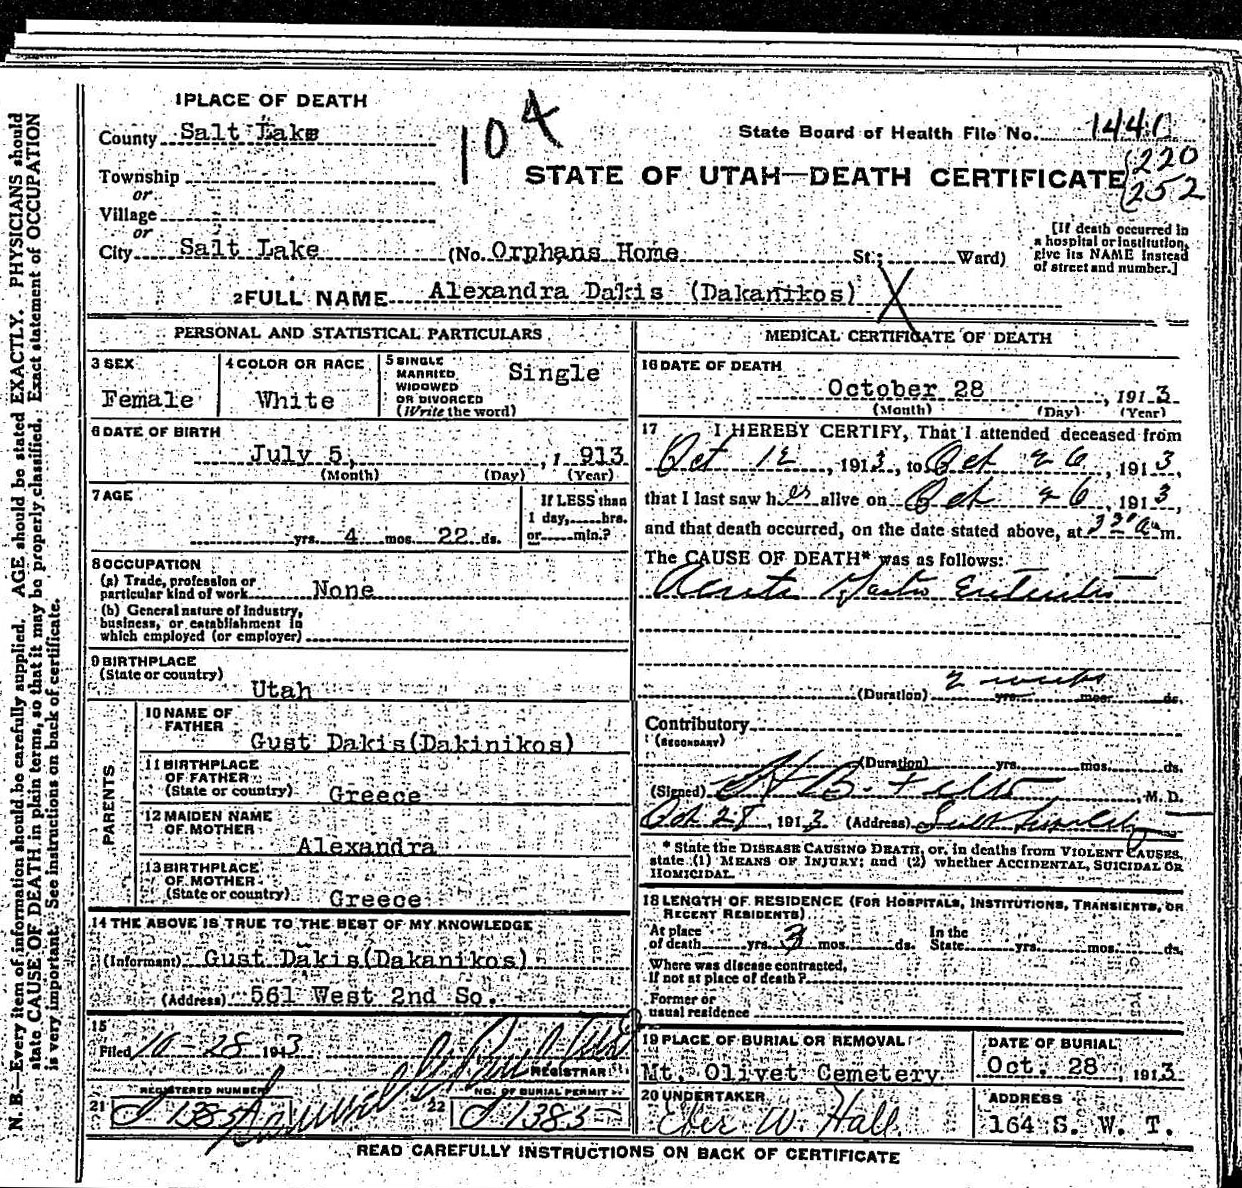 1 PLACE OF DEATH
County Salt Lake
104
State Board of Health File No. 1441
Township
or
Village
or
STATE OF UTAH—DEATH CERTIFICATE
220
252
City Salt Lake (No. Orphans Home St.; Ward)
[If death occurred in a hospital or institution, give its NAME instead of street and number.]
2 FULL NAME Alexandra Dakis (Dakanikos) X
PERSONAL AND STATISTICAL PARTICULARS
3 SEX
Female
4 COLOR OR RACE
White
5 SINGLE
MARRIED
WIDOWED
OR DIVORCED
(Write the word)
Single
6 DATE OF BIRTH
July 5, , 1 913
(Month) (Day) (Year)
7 AGE
yrs. 4 mos. 22 ds.
If LESS than
1 day, hrs.
or min.?
8 OCCUPATION
(a) Trade, profession or
particular kind of work None
(b) General nature of industry,
business, or establishment in
which employed (or employer)
9 BIRTHPLACE
(State or country)
Utah
PARENTS
10 NAME OF
FATHER
Gust Dakis(Dakinikos)
11 BIRTHPLACE
OF FATHER
(State or country) Greece
12 MAIDEN NAME
OF MOTHER
Alexandra
13 BIRTHPLACE
OF MOTHER
(State or country) Greece
14 THE ABOVE IS TRUE TO THE BEST OF MY KNOWLEDGE
(Informant) Gust Dakis(Dakanikos)
(Address) 561 West 2nd So.
15
Filed 10-28 1913
REGISTRAR
REGISTERED NUMBER
21 J 1385
NO. OF BURIAL PERMIT
22 J 1385
MEDICAL CERTIFICATE OF DEATH
16 DATE OF DEATH
October 28 , 1913
(Month) (Day) (Year)
17 I HEREBY CERTIFY, That I attended deceased from
Oct 12, 1913, to Oct 26, 1913,
that I last saw her alive on Oct 26, 1913,
and that death occurred, on the date stated above, at 3 30 a m.
The CAUSE OF DEATH* was as follows:
Acute Gastro Enteritis
(Duration) 2 weeks yrs. mos. ds.
Contributory
(SECONDARY)
(Duration) yrs. mos. ds.
(Signed) , M. D.
Oct 28, 1913 (Address) Salt Lake City
* State the DISEASE CAUSING DEATH, or, in deaths from VIOLENT CAUSES,
state (1) MEANS OF INJURY; and (2) whether ACCIDENTAL, SUICIDAL OR
HOMICIDAL.
18 LENGTH OF RESIDENCE (FOR HOSPITALS, INSTITUTIONS, TRANSIENTS, OR
RECENT RESIDENTS)
At place
of death yrs. 3 mos. ds.
In the
State yrs. mos. ds.
Where was disease contracted,
If not at place of death?
Former or
usual residence
19 PLACE OF BURIAL OR REMOVAL
Mt. Olivet Cemetery
DATE OF BURIAL
Oct. 28 , 1913
20 UNDERTAKER
Eber W. Hall
ADDRESS
164 S. W. T.
READ CAREFULLY INSTRUCTIONS ON BACK OF CERTIFICATE
N. B.—Every item of information should be carefully supplied. AGE should be stated EXACTLY. PHYSICIANS should
state CAUSE OF DEATH in plain terms, so that it may be properly classified. Exact statement of OCCUPATION
is very important. See instructions on back of certificate.